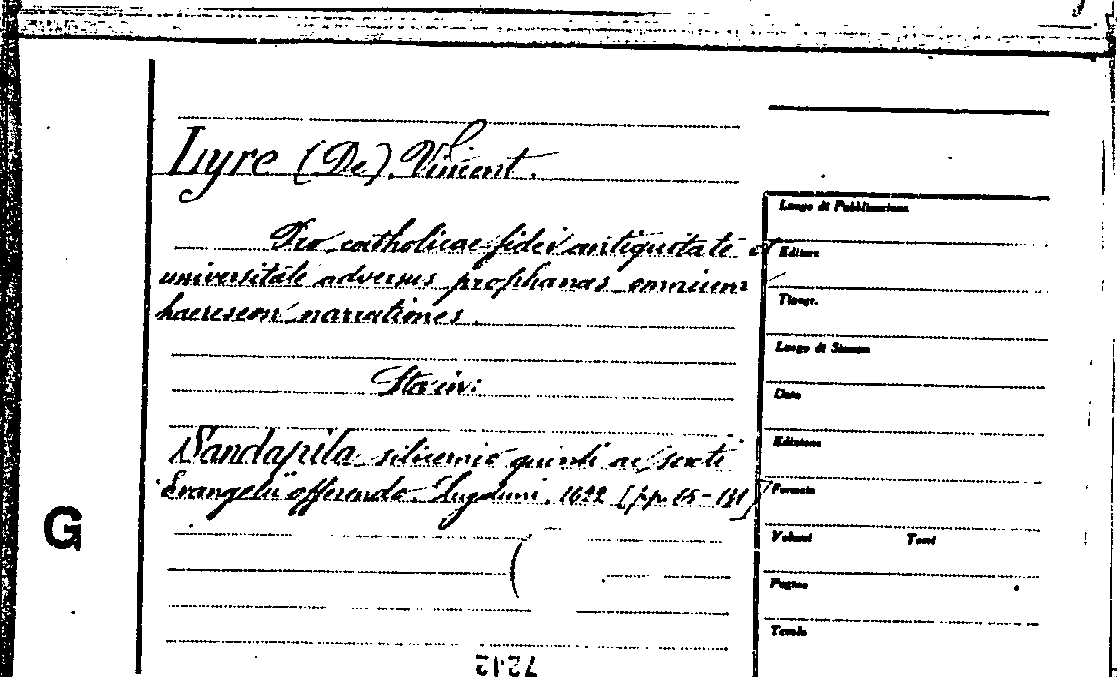 Lyre (De). Vincent.
Pro catholicae fidei antiquitate et
universitate adversus prophanas omnium
haereseon narrationes.
Sta in:
Sandapila silicernio quinti ac sexti
Evangelii offerendo. Lugduni. 1622 [pp. 65-131]
Luogo di Pubblicazione
Editore
Tipogr.
Luogo di Stampa
Data
Edizione
Formato
Volumi Tomi
Pagine
Tavole
G
7242